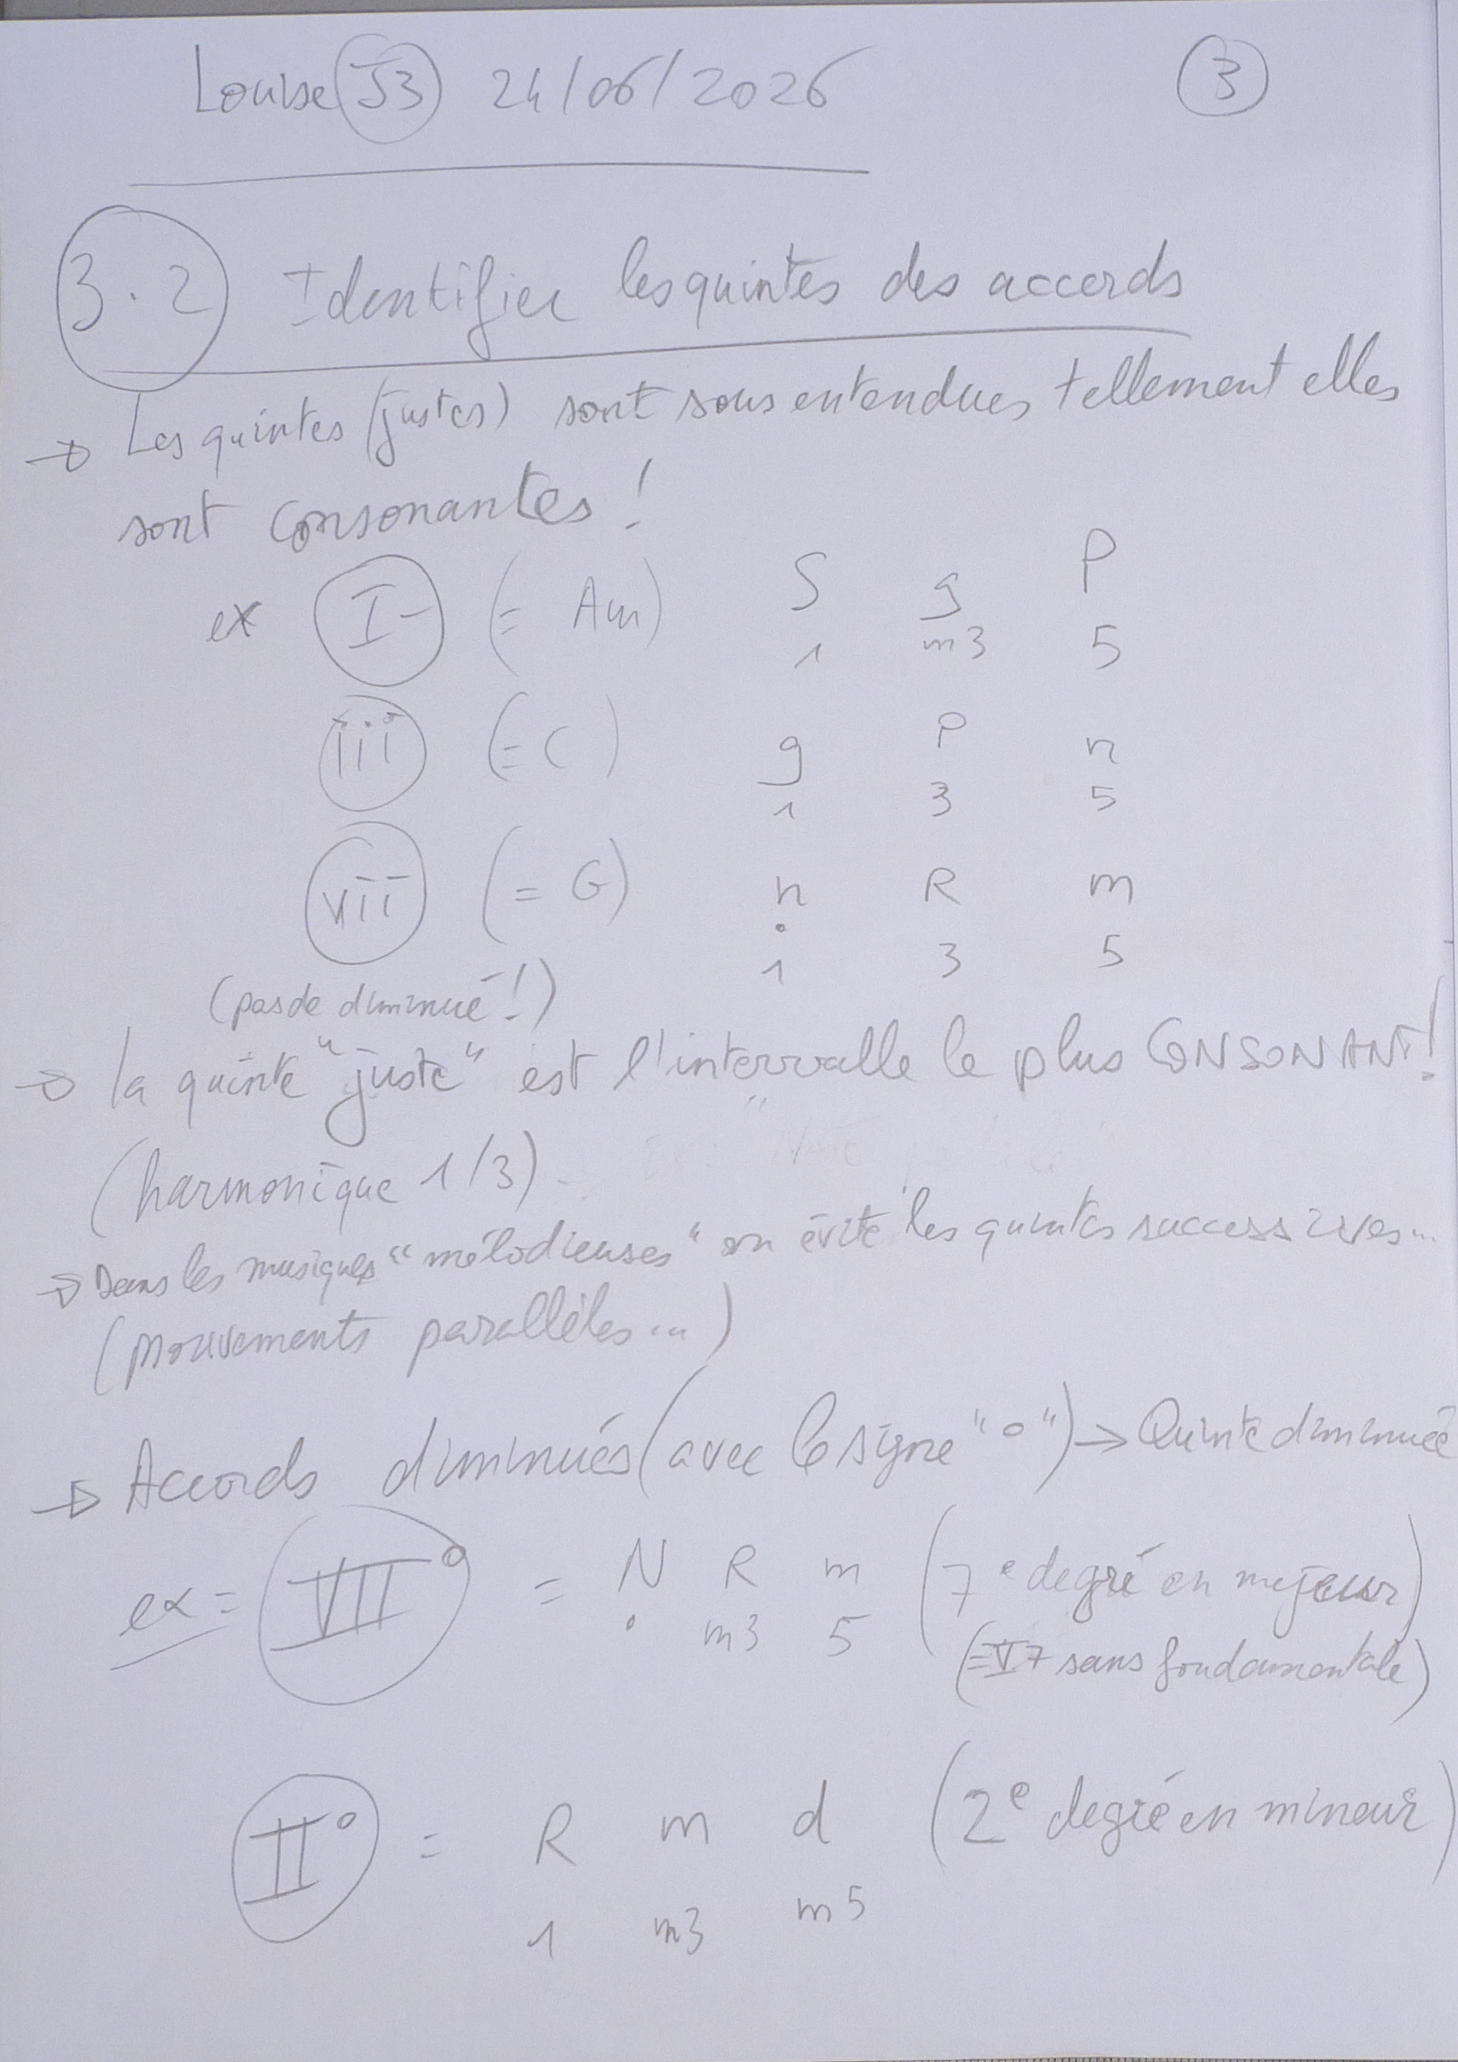 Louise J3 24/06/2026 3
3.2 Identifier les quintes des accords
→ Les quintes (justes) sont sous entendues tellement elles
sont consonantes !
ex I- (= Am) S g P
1 m3 5
iii (= C) g P n
1 3 5
vii (= G) n R m
1 3 5
(pas de diminué !)
→ la quinte "juste" est l'intervalle le plus CONSONANT !
(harmonique 1/3)
→ Dans les musiques "mélodieuses" on évite les quintes successives...
(mouvements parallèles...)
→ Accords diminués (avec le signe "°") → Quinte diminuée
ex = VII° = N R m (7e degré en majeur)
m3 5 (= V7 sans fondamentale)
II° = R m d (2e degré en mineur)
1 m3 m5